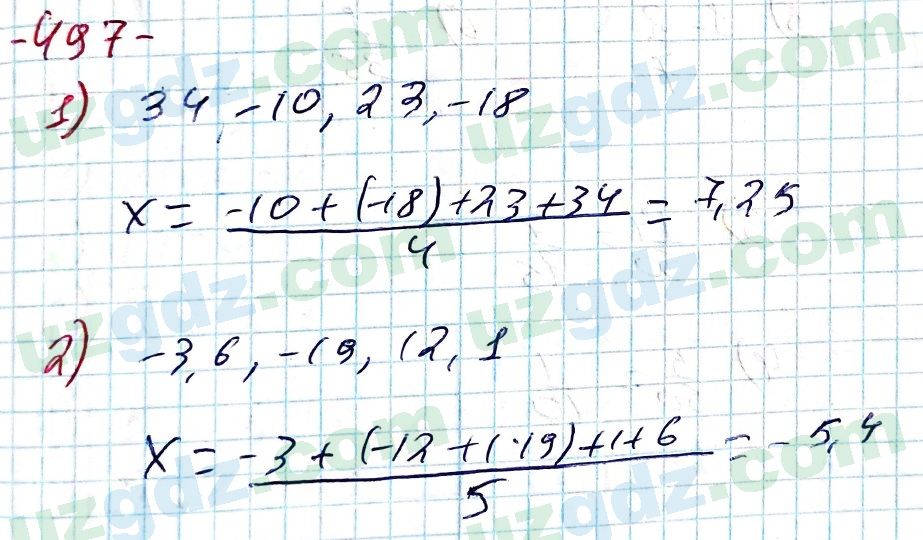 -497-
1) 34, -10, 23, -18
x = -10 + (-18) + 23 + 34 / 4 = 7,25
2) -3, 6, -19, 12, 1
x = -3 + (-12 + (-19) + 1 + 6 / 5 = -5,4
uzgdz.com
uzgdz.com
uzgdz.com
uzgdz.com
uzgdz.com
uzgdz.com
uzgdz.com
uzgdz.com